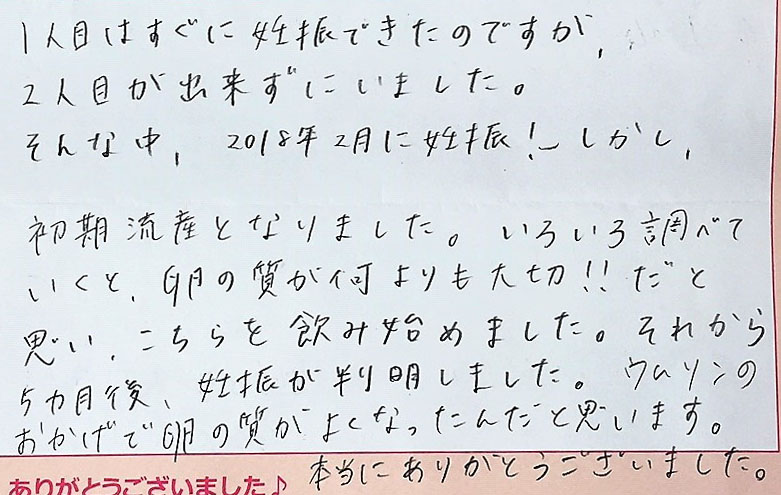 1人目はすぐに妊娠できたのですが、
2人目が出来ずにいました。
そんな中、2018年2月に妊娠! しかし、
初期流産となりました。いろいろ調べて
いくと、卵の質が何よりも大切!!だと
思い、こちらを飲み始めました。それから
5カ月後、妊娠が判明しました。ウムリンの
おかげで卵の質がよくなったんだと思います。
本当にありがとうございました。
ありがとうございました♪